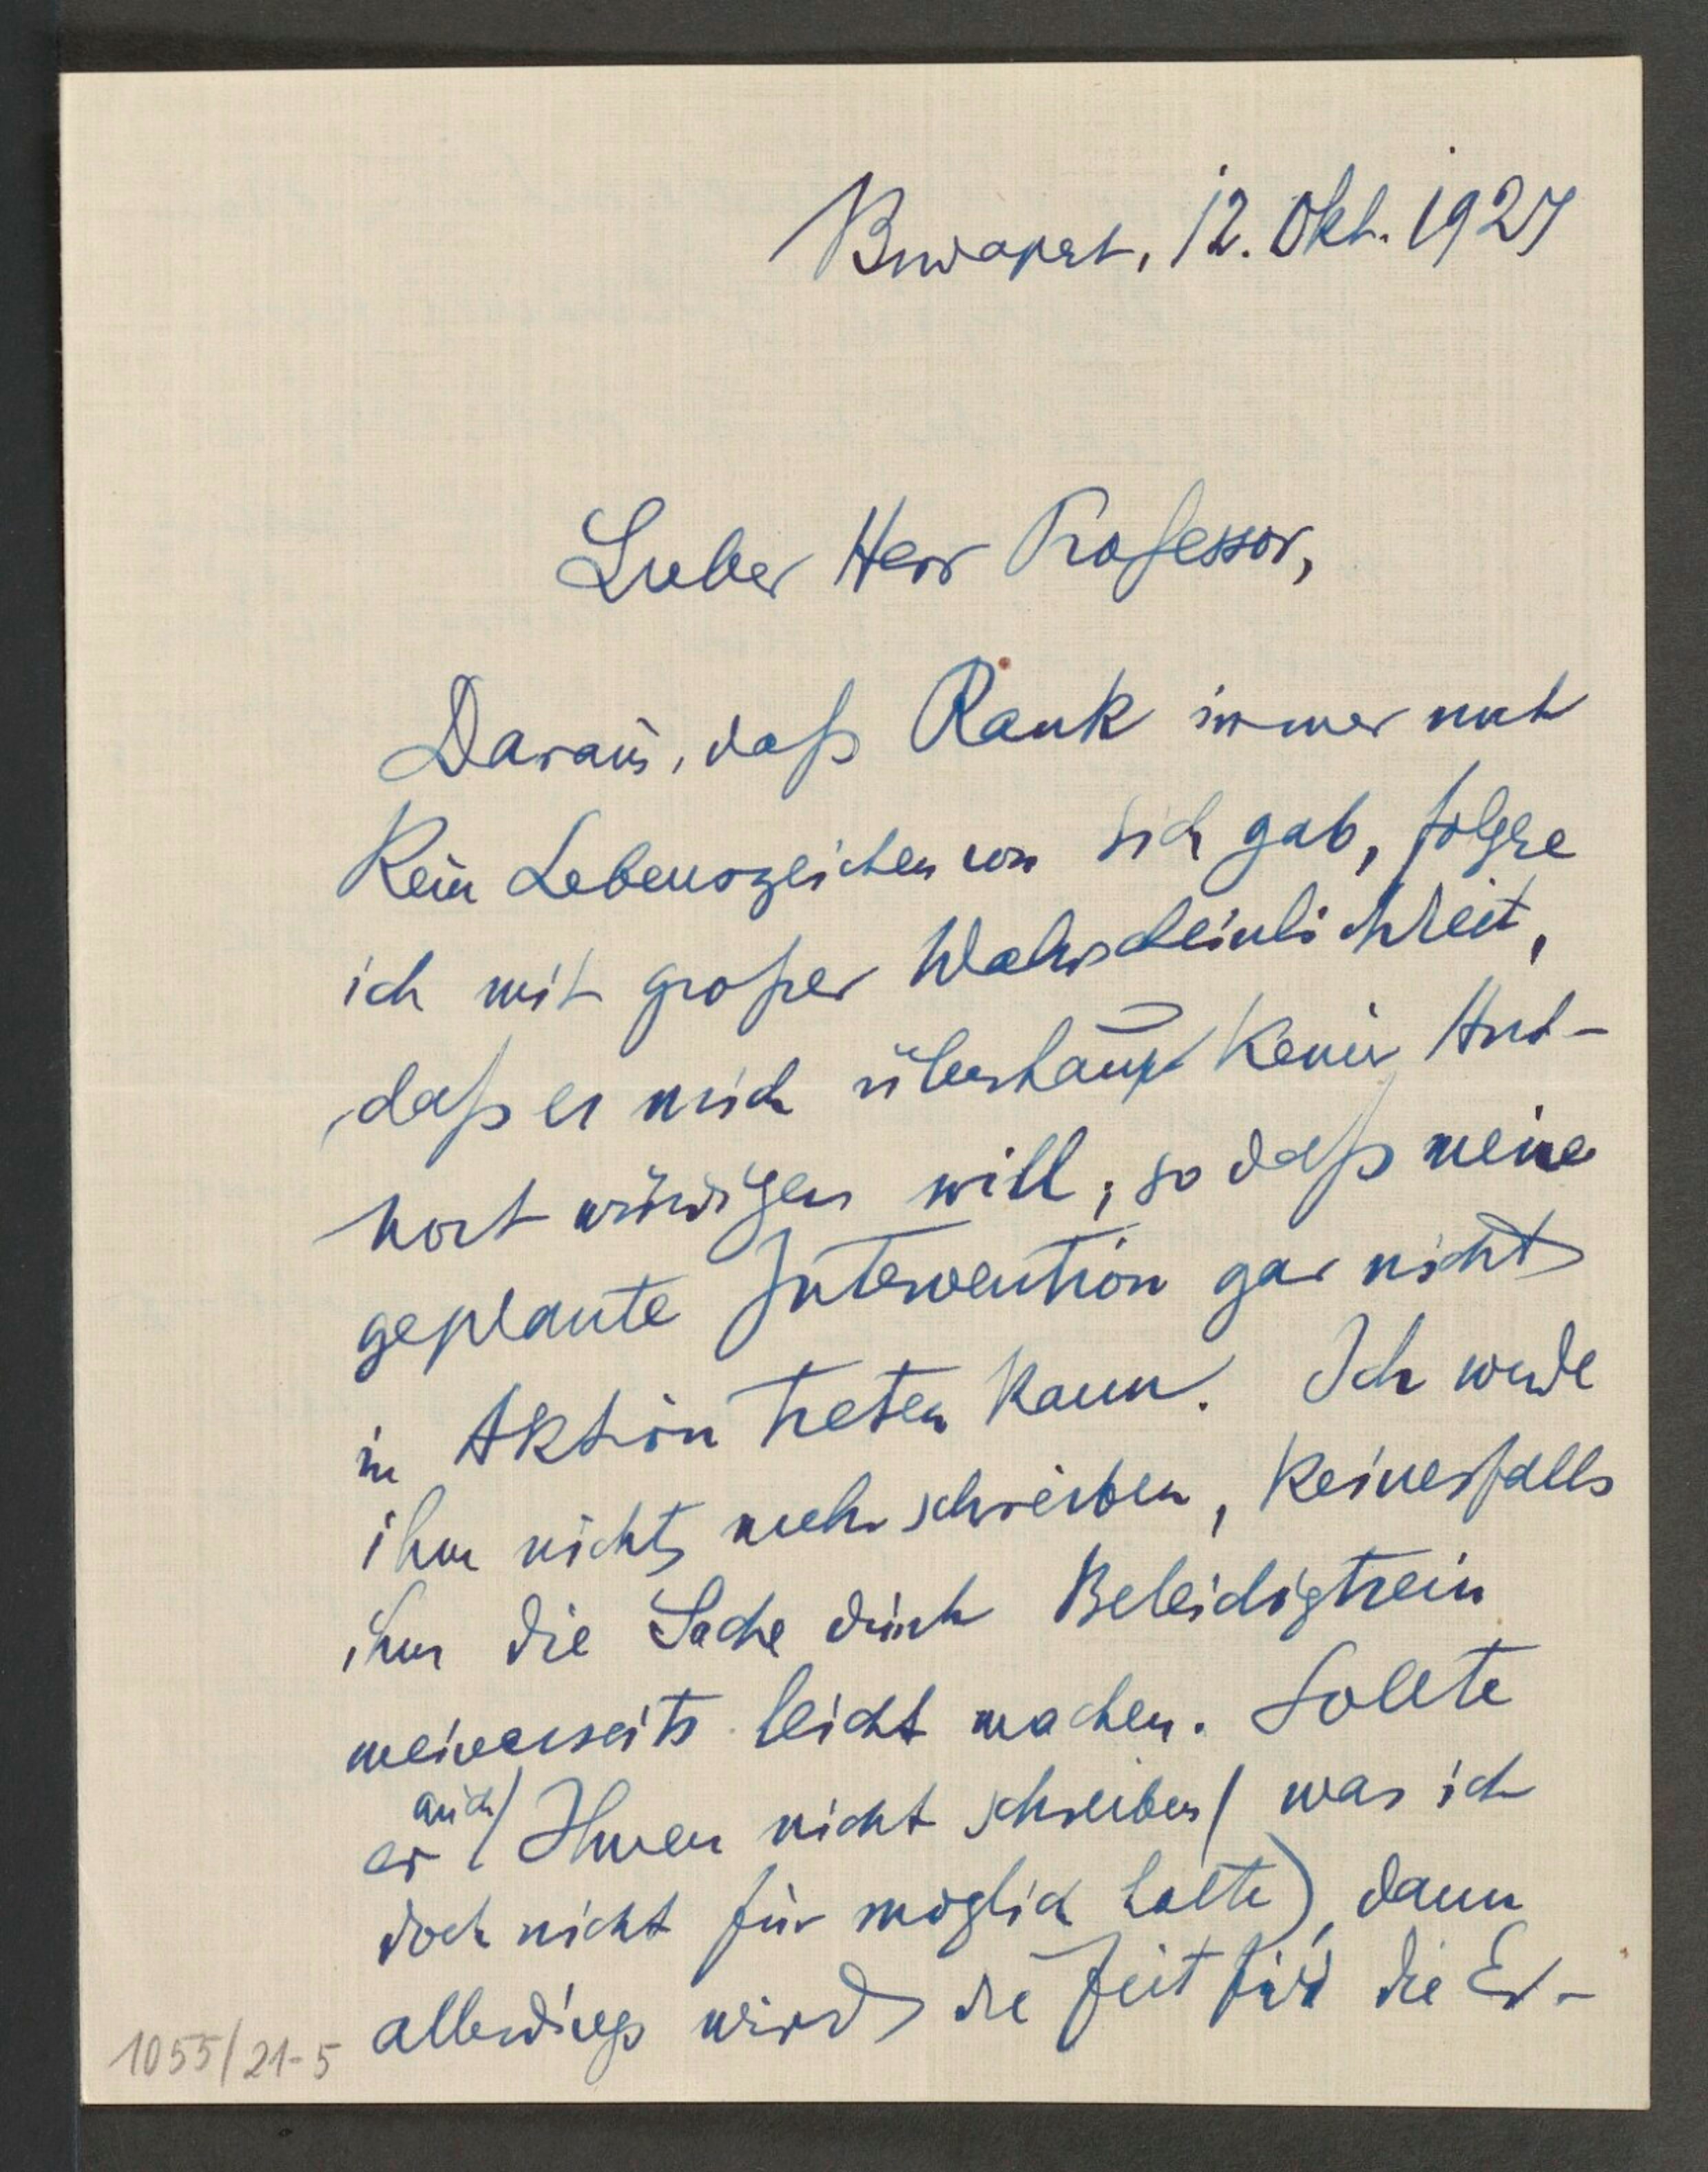 Budapest, 12. Okt. 1924
Lieber Herr Professor,
Daraus, daß Rank immer noch
kein Lebenszeichen von sich gab, folgre
ich mit großer Wahrscheinlichkeit,
daß er mich überhaupt keiner Ant-
wort würdigen will, so daß meine
geplante Intervention gar nicht
in Aktion treten kann. Ich werde
ihm nicht mehr schreiben, keinesfalls
ihm die Sache durch Beleidigtsein
meinerseits leicht machen. Sollte
auch
er Ihnen nicht schreiben (was ich
doch nicht für möglich halte), dann
allerdings wird die Zeit für die Er-
1055/21-5